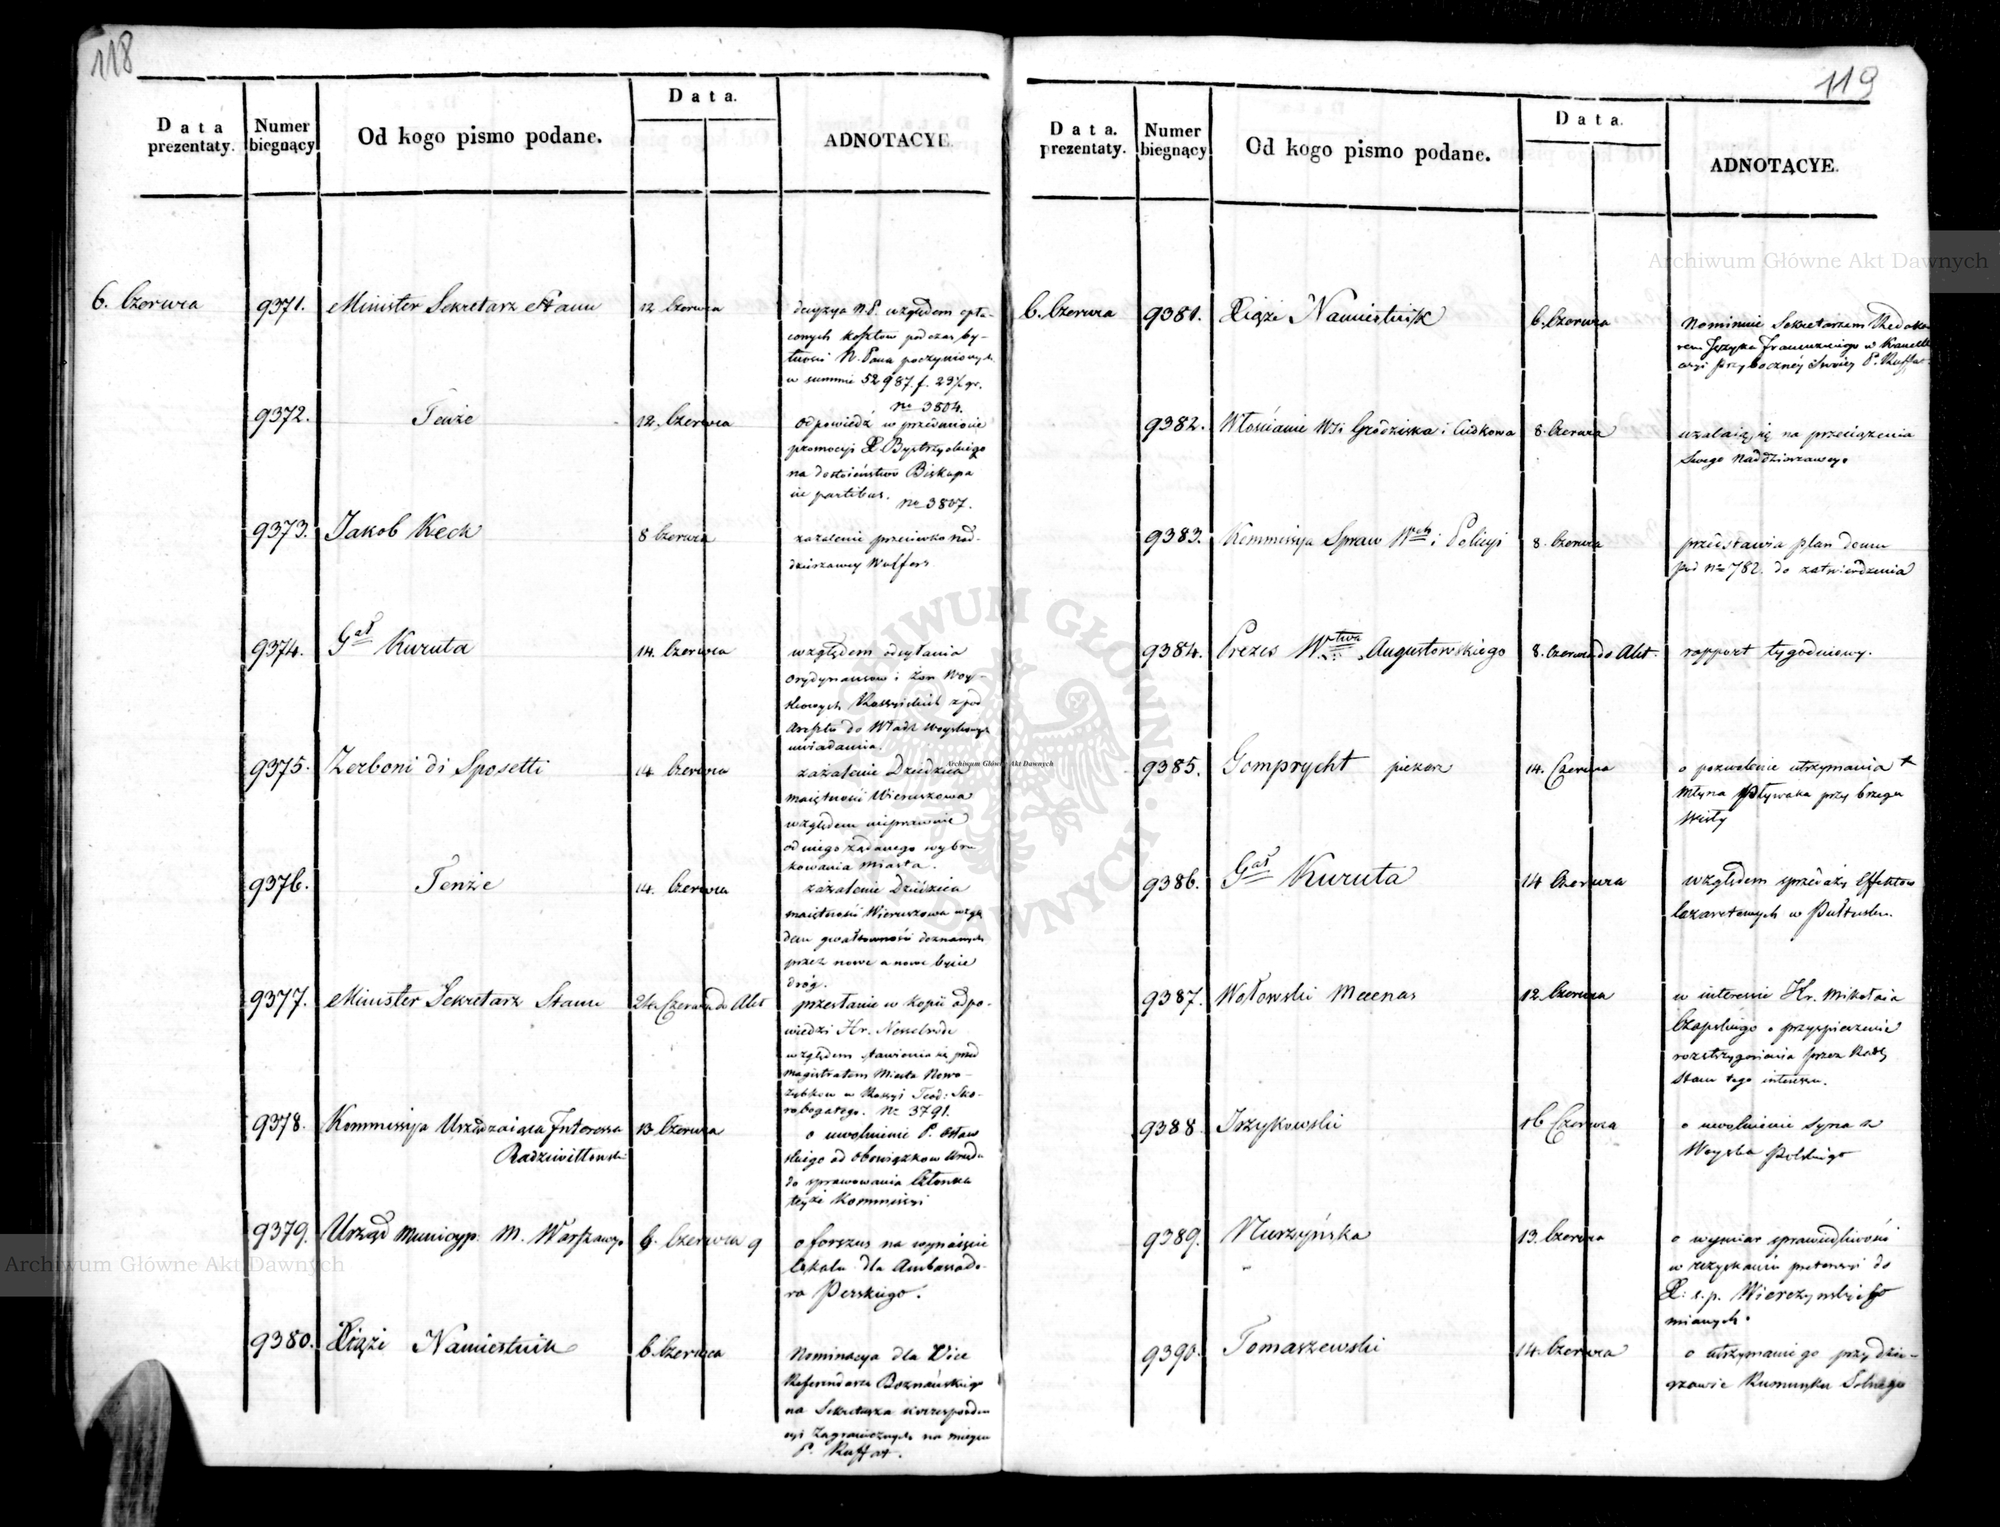 118
Data prezentaty.
Numer biegnący
Od kogo pismo podane.
Data.
ADNOTACYE.
6. Czerwca
9371.
Minister Sekretarz Stanu
12 Czerwca
decyzya N. P. względem opła-
conych kosztów podczas by-
tności N. Pana poczynionych
w summie 52987. f. 23½ gr.
No 3804.
9372.
Tenże
12. Czerwca
odpowiedź w przedmiocie
promocyi X. Bystrzyckiego
na dostoieństwo Biskupa
in partibus.
No 3807.
9373.
Jakob Keck
8 Czerwca
zażalenie przeciwko nad-
dzierżawcy Wolfers
9374.
Gał Kuruta
14. Czerwca
względem odsyłania
ordynansów i żon Woy-
skowych Rossyiskich z pod
Aresztu do Władz woyskowych
uwiadamia.
9375.
Zerboni di Sposetti
14. Czerwca
zażalenie Dziedzica
maiętności Wieruszowa
względem nieprawnie
od niego żądanego wybru
kowania miasta.
9376.
Tenże
14. Czerwca
zażalenie Dziedzica
maiętności Wieruszowa wzglę
dem gwałtowności doznanych
przez nowe a nowe bycie
dróg.
9377.
Minister Sekretarz Stanu
24. Czerwca do Akt
przesłanie w kopii odpo-
wiedzi Hr. Nesselrode
względem stawienia się przed
magistratem Miasta Nowo-
zybkow w Rossyi Teod: Sko-
robogatego. No 3791.
9378.
Kommissya Urządzaiąca Interessa
Radziwiłłowski:
13 Czerwca
o uwolnienie P.
skiego od obowiązkow Urzędu
do sprawowania Członka
teyże Kommissyi
9379.
Urząd Municyp: M. Warszawy
6. Czerwca 9
o forszus na wynaięcie
lokalu dla Ambassado-
ra Perskiego.
9380.
Xiąże Namiestnik
6. Czerwca
Nominacya dla Vice
Referendarza Boznańskiego
na Sekretarza korresponden
cyi Zagranicznych na mieyscu
P. Ruffat.
119
Data. prezentaty.
Numer biegnący
Od kogo pismo podane.
Data.
ADNOTACYE.
6. Czerwca
9381.
Xiąże Namiestnik
6. Czerwca
Nominuie Sekretarzem Redakto
rem Języka Francuzkiego w Kancell
aryi przybocznéy Swoiéy P. Ruffat
9382.
Włościanie Wsi Grodziska i Cudkowa
8. Czerwca
użalaią się na przeciążenia
Swego Naddzierżawcy.
9383.
Kommissya Spraw Wch i Policyi
8. Czerwca
przedstawia plan domu
pod No 782. do zatwierdzenia
9384.
Prezes Wtwa Augustowskiego
8. Czerwca do Akt.
rapport tygodniowy.
9385.
Gomprycht piekarz
14. Czerwca
o pozwolenie utrzymania
Młyna Pływaka przy brzegu
Wisły
9386.
Gał Kuruta
14 Czerwca
względem sprzedaży Effektow
lazaretowych w Pułtusku.
9387.
Wołowski Mecenas
12. Czerwca
w interessie Hr. Mikołaia
Czapskiego o przyspieszenie
rozstrzygnienia przez Radę
Stanu tego interessu.
9388.
Iszykowski
16 Czerwca
o uwolnienie Syna z
Woyska Polskiego
9389.
Murzyńska
13. Czerwca
o wymiar sprawiedliwości
w zyskaniu pretensyi do
X: ś. p. Wierzynskiego
mianych.
9390.
Tomaszewski
14. Czerwca
o utrzymanie go przy dzier-
żawie Rumunku Solnego
Archiwum Główne Akt Dawnych
ARCHIWUM GŁÓWNE AKT DAWNYCH
Archiwum Główne Akt Dawnych
Archiwum Główne Akt Dawnych